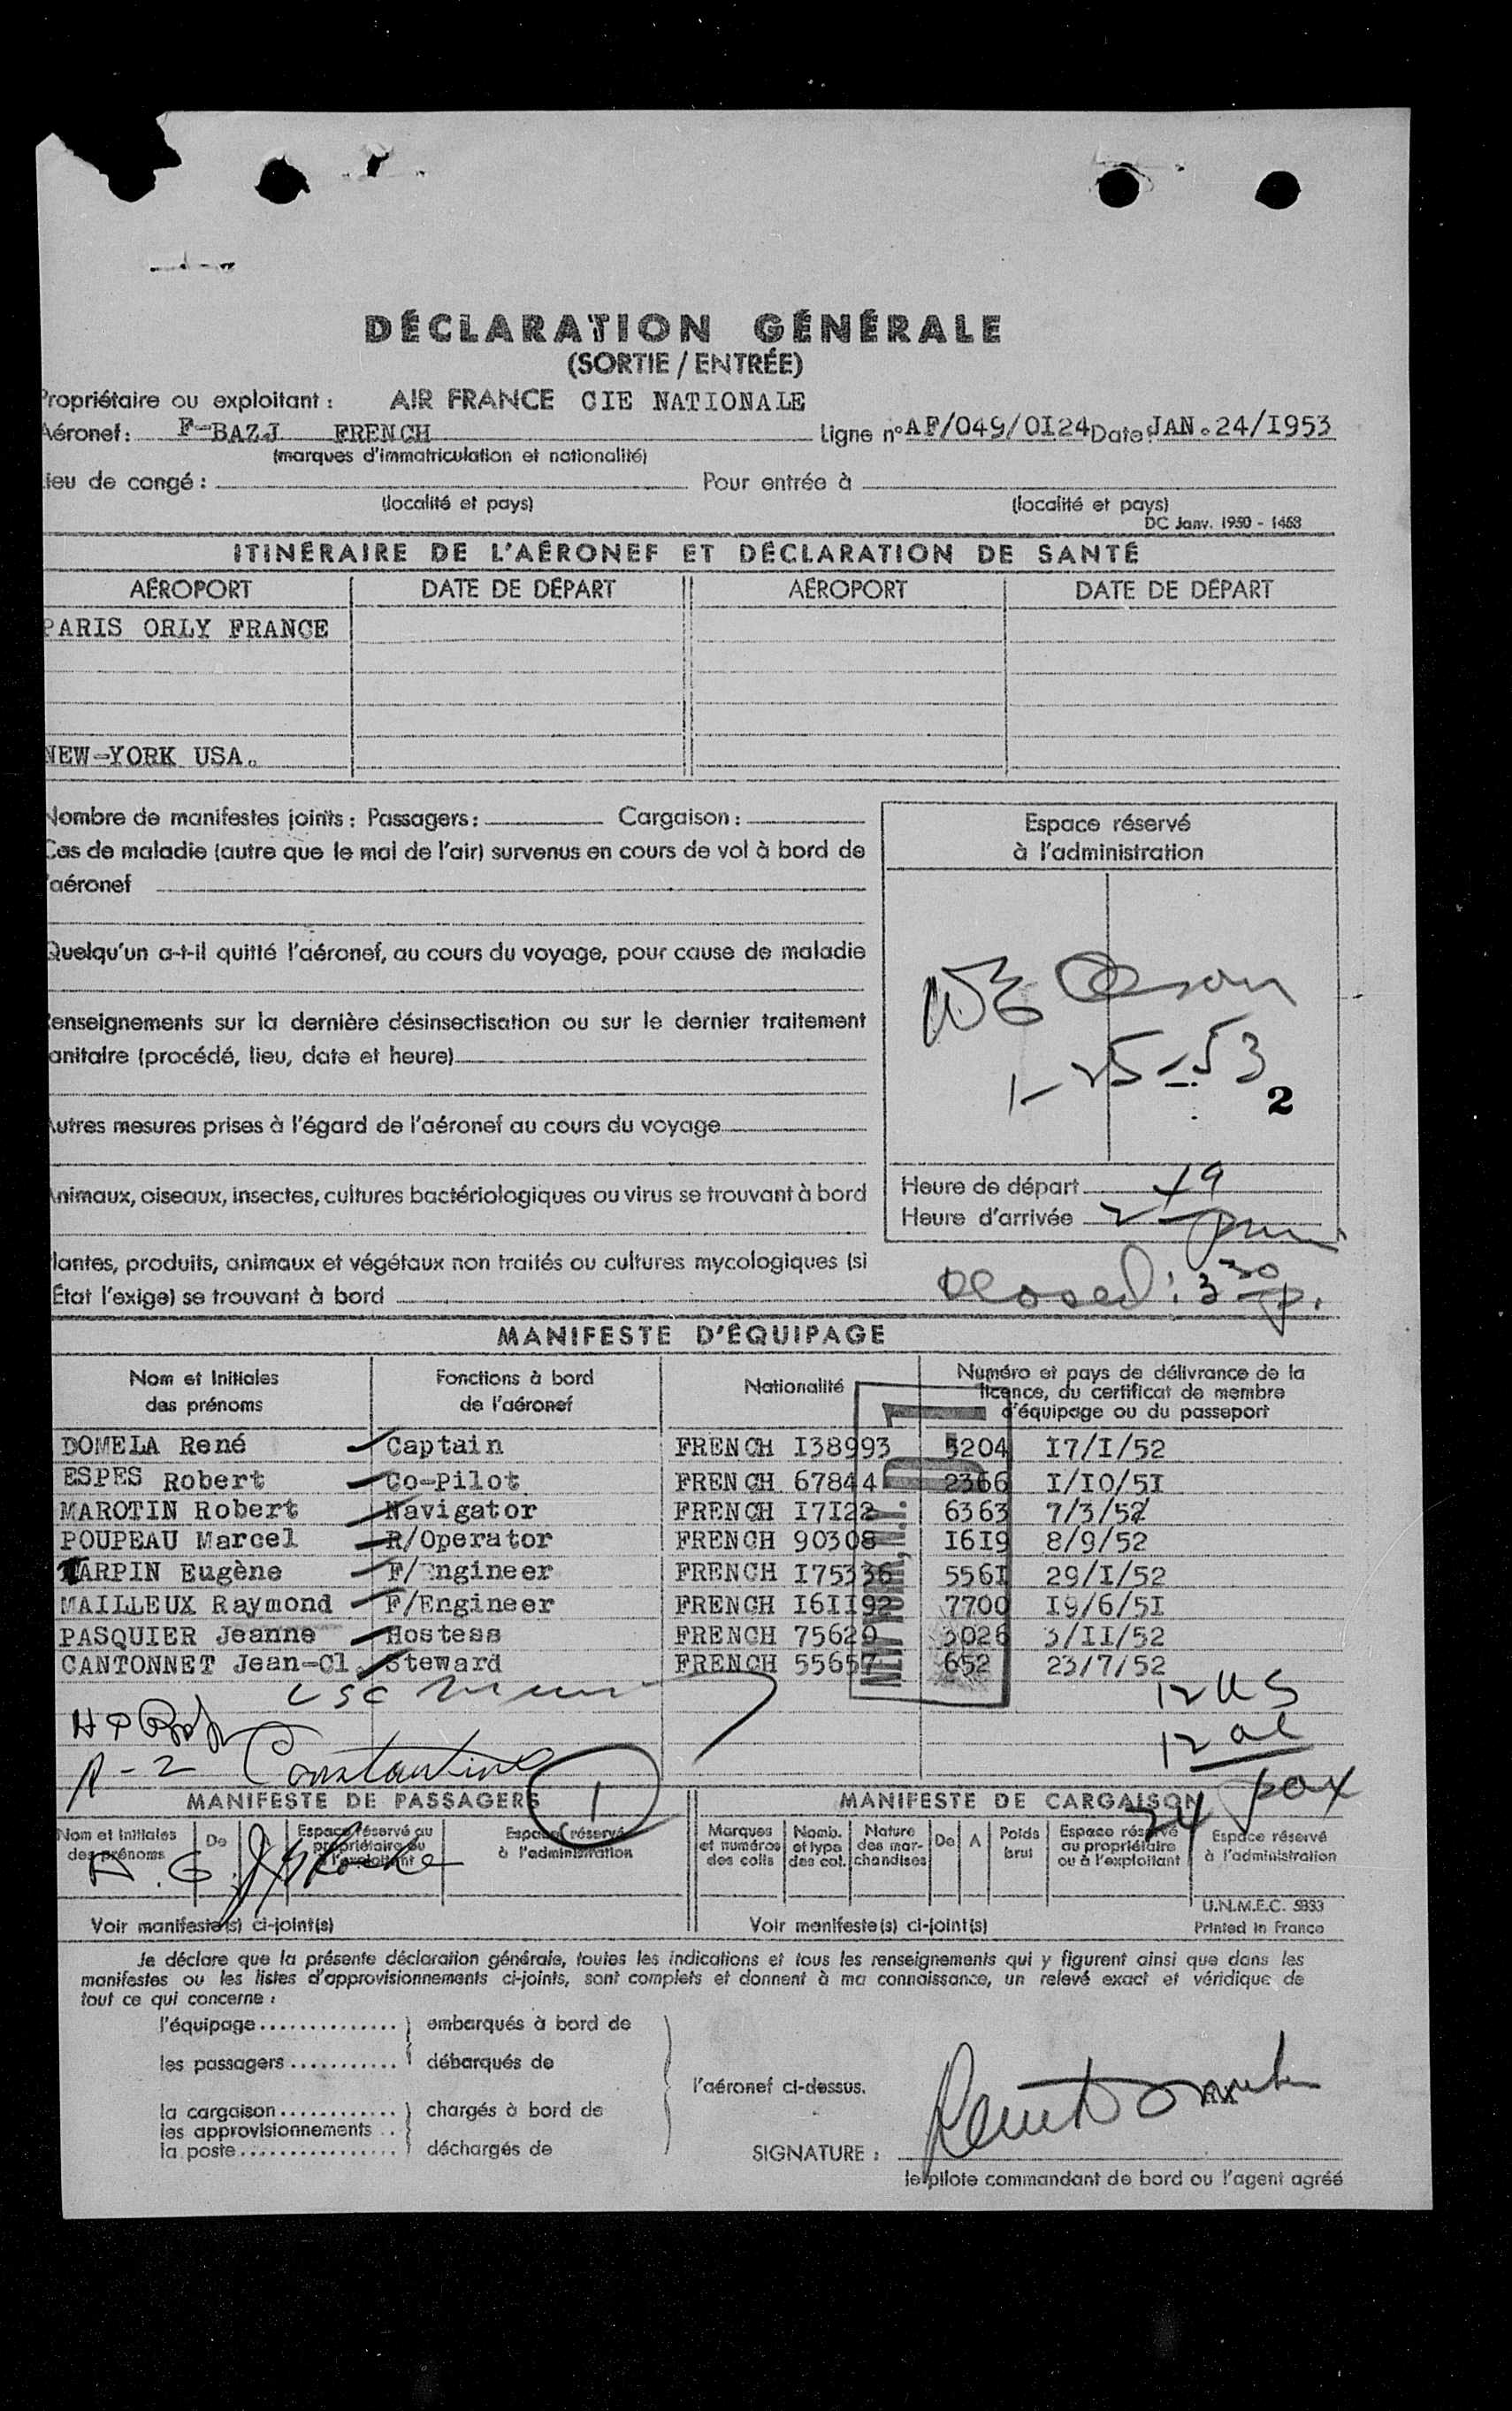 DÉCLARATION GÉNÉRALE
(SORTIE / ENTRÉE)
Propriétaire ou exploitant : AIR FRANCE CIE NATIONALE
Aéronef: F-BAZJ FRENCH Ligne n° AF/049/0I24 Date: JAN. 24/I953
(marques d'immatriculation et nationalité)
ieu de congé : Pour entrée à
(localité et pays) (localité et pays)
DC Janv. 1950 - 1468
ITINÉRAIRE DE L'AÉRONEF ET DÉCLARATION DE SANTÉ
AÉROPORT DATE DE DÉPART AÉROPORT DATE DE DÉPART
PARIS ORLY FRANCE
NEW-YORK USA.
Nombre de manifestes joints : Passagers : Cargaison :
Cas de maladie (autre que le mal de l'air) survenus en cours de vol à bord de
'aéronef
Quelqu'un a-t-il quitté l'aéronef, au cours du voyage, pour cause de maladie
enseignements sur la dernière désinsectisation ou sur le dernier traitement
anitaire (procédé, lieu, date et heure)
Autres mesures prises à l'égard de l'aéronef au cours du voyage
Animaux, oiseaux, insectes, cultures bactériologiques ou virus se trouvant à bord
lantes, produits, animaux et végétaux non traités ou cultures mycologiques (si
État l'exige) se trouvant à bord
Espace réservé
à l'administration
1-25-53
2
Heure de départ
Heure d'arrivée 2 19 pm
closed : 3 30 p.
MANIFESTE D'ÉQUIPAGE
Nom et Initiales des prénoms Fonctions à bord de l'aéronef Nationalité Numéro et pays de délivrance de la licence, du certificat de membre d'équipage ou du passeport
DOMELA René Captain FRENCH I38993 5204 I7/I/52
ESPES Robert Co-Pilot FRENCH 67844 2366 I/I0/5I
MAROTIN Robert Navigator FRENCH I7I22 6363 7/3/52
POUPEAU Marcel R/Operator FRENCH 90308 I6I9 8/9/52
TARPIN Eugène F/Engineer FRENCH I75336 556I 29/I/52
MAILLEUX Raymond F/Engineer FRENCH I6II92 7700 I9/6/5I
PASQUIER Jeanne Hostess FRENCH 75629 3026 3/II/52
CANTONNET Jean-Cl. Steward FRENCH 55657 652 23/7/52
NEW YORK, N.Y.
12 US
12 al
24 pax
A-2 Constantine
1
MANIFESTE DE PASSAGERS MANIFESTE DE CARGAISON
Nom et Initiales des prénoms De Espace réservé au propriétaire ou à l'exploitant Espace réservé à l'administration
Marques et numéros des colis Nomb. et type des col. Nature des mar- chandises De A Poids brut Espace réservé au propriétaire ou à l'exploitant Espace réservé à l'administration
U.N.M.E.C. 5933
Voir manifeste(s) ci-joint(s) Voir manifeste(s) ci-joint(s) Printed in France
Je déclare que la présente déclaration générale, toutes les indications et tous les renseignements qui y figurent ainsi que dans les
manifestes ou les listes d'approvisionnements ci-joints, sont complets et donnent à ma connaissance, un relevé exact et véridique de
tout ce qui concerne :
l'équipage .............. embarqués à bord de
les passagers ........... débarqués de
l'aéronef ci-dessus.
la cargaison ............ chargés à bord de
les approvisionnements ..
la poste ................ déchargés de
SIGNATURE :
le pilote commandant de bord ou l'agent agréé